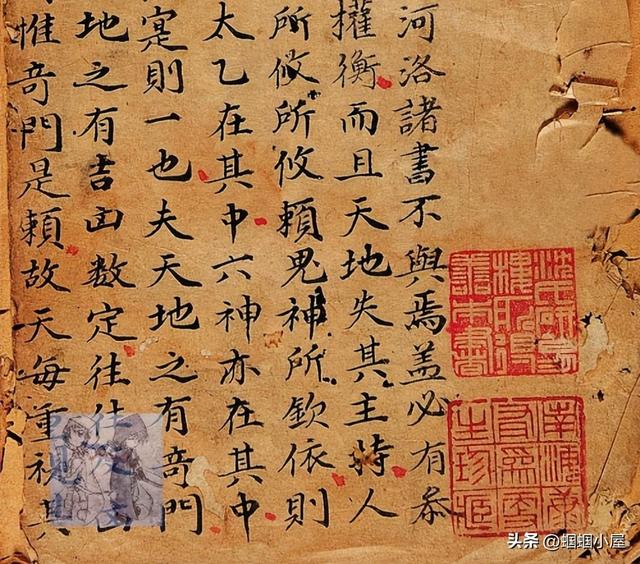 河洛諸書不與焉盖必有叅
權衡而且天地失其主特人
所攸所攸賴鬼神所欽依則
太乙在其中六神亦在其中
寔則一也夫天地之有竒門
地之有吉凶数定往往凶
惟竒門是賴故天每重視其
头条 @蝈蝈小屋